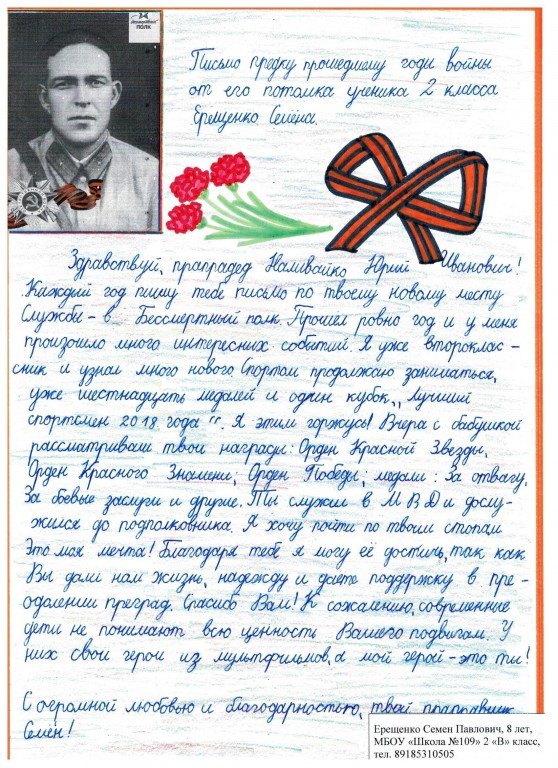 Бессмертный
ПОЛК
Письмо предку прошедшему годы войны
от его потомка ученика 2 класса
Ерещенко Семёна.
Здравствуй, прапрадед Наливайко Юрий Иванович!
Каждый год пишу тебе письмо по твоему новому месту
Службы - в Бессмертный полк. Прошел ровно год и у меня
произошло много интересных событий. Я уже второклас -
сник и узнал много нового. Спортом продолжаю заниматься,
уже шестнадцать медалей и один кубок „Лучший
спортсмен 2018 года". Я этим горжусь! Вчера с бабушкой
рассматривали твои награды: Орден Красной Звезды,
Орден Красного Знамени, Орден Победы; медали: За отвагу,
За боевые заслуги и другие. Ты служил в МВД и дослу-
жился до подполковника. Я хочу пойти по твоим стопам
Это моя мечта! Благодаря тебе я могу её достичь, так как
Вы дали нам жизнь, надежду и даете поддержку в пре -
одалении преград. Спасибо Вам! К сожалению, современные
дети не понимают всю ценность Вашего подвигам. У
них свои герои из мультфильмов, а мой герой - это ты!
С огромной любовью и благодарностью, твой праправнук
Семён!
Ерещенко Семен Павлович, 8 лет,
МБОУ «Школа №109» 2 «В» класс,
тел. 89185310505